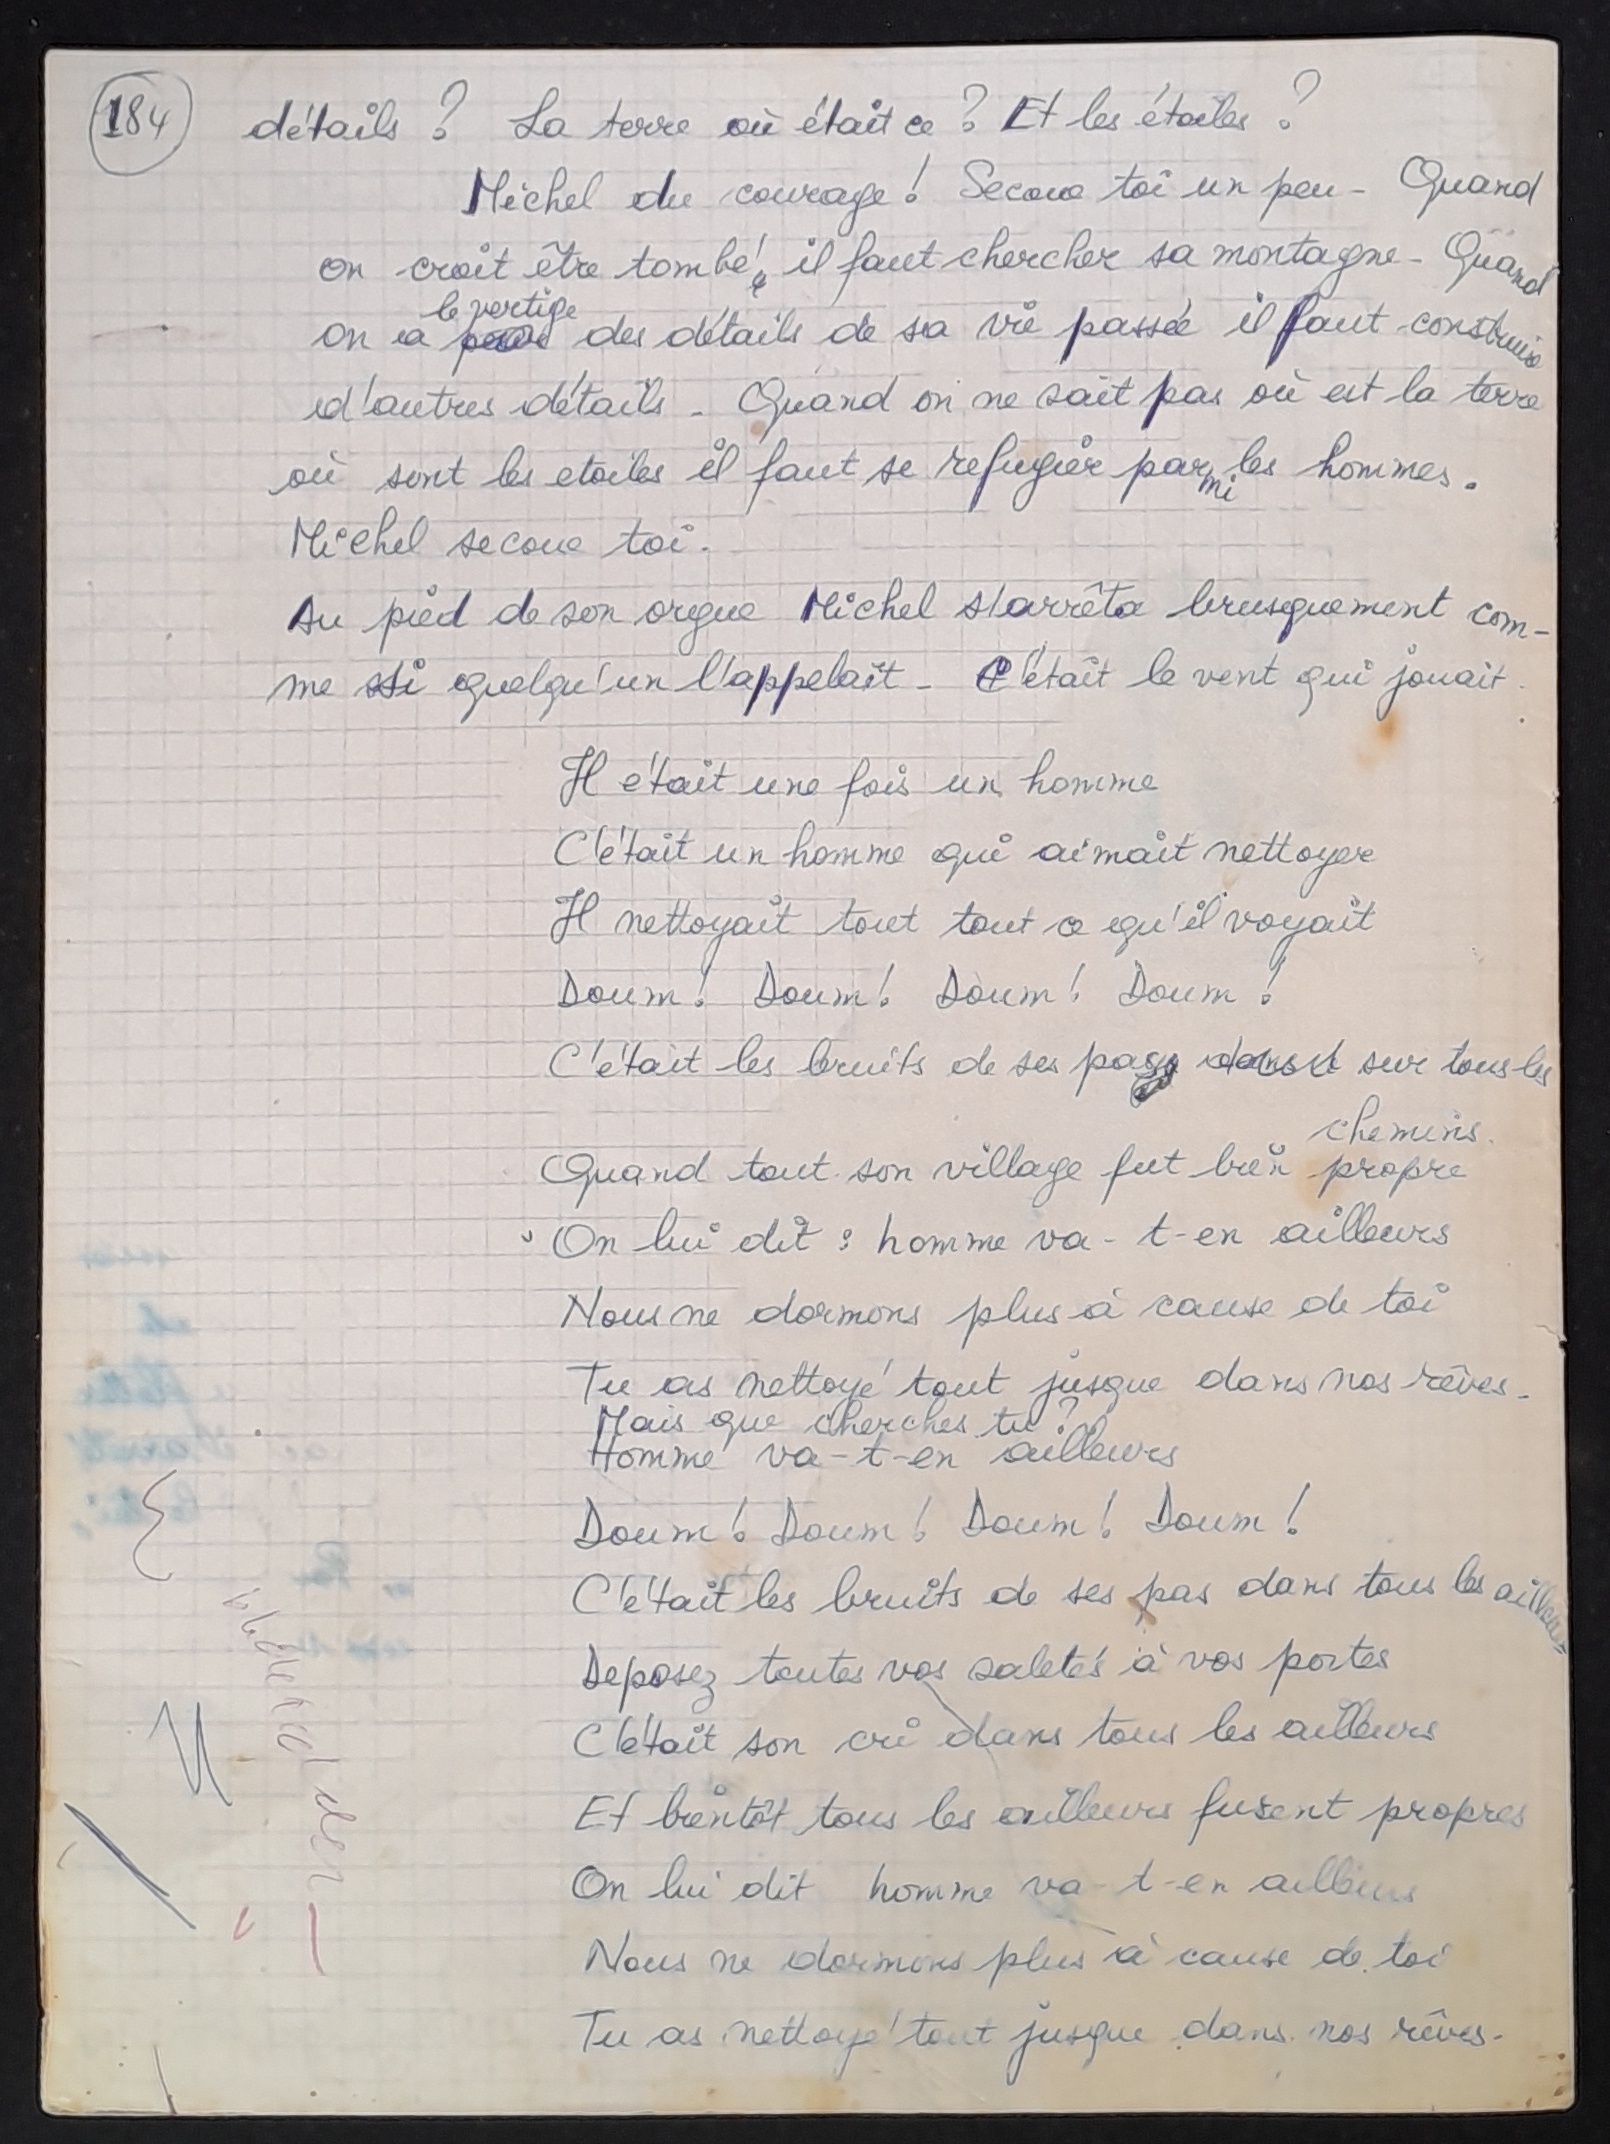 184
détails ? La terre où était ce ? Et les étoiles ?
Michel du courage ! Secoue toi un peu - Quand
on croit être tombé, il faut chercher sa montagne - Quand
le vertige
on a des détails de sa vie passée il faut construire
d'autres détails - Quand on ne sait pas où est la terre
où sont les etoiles il faut se refugier parmi les hommes.
Michel secoue toi.
Au pied de son orgue Michel s'arrêta brusquement com-
me si quelqu'un l'appelait - C'était le vent qui jouait.
Il était une fois un homme
C'était un homme qui aimait nettoyer
Il nettoyait tout tout ce qu'il voyait
Doum ! Doum ! Doum ! Doum !
C'était les bruits de ses pas sur tous les
chemins.
Quand tout son village fut bien propre
On lui dit : homme va-t-en ailleurs
Nous ne dormons plus à cause de toi
Tu as nettoyé tout jusque dans nos rêves -
Mais que cherches tu ?
Homme va-t-en ailleurs
Doum ! Doum ! Doum ! Doum !
C'était les bruits de ses pas dans tous les ailleurs
Deposez toutes vos saletés à vos portes
C'était son cri dans tous les ailleurs
Et bientôt tous les ailleurs furent propres
On lui dit homme va-t-en ailleurs
Nous ne dormons plus à cause de toi
Tu as nettoyé tout jusque dans nos rêves -